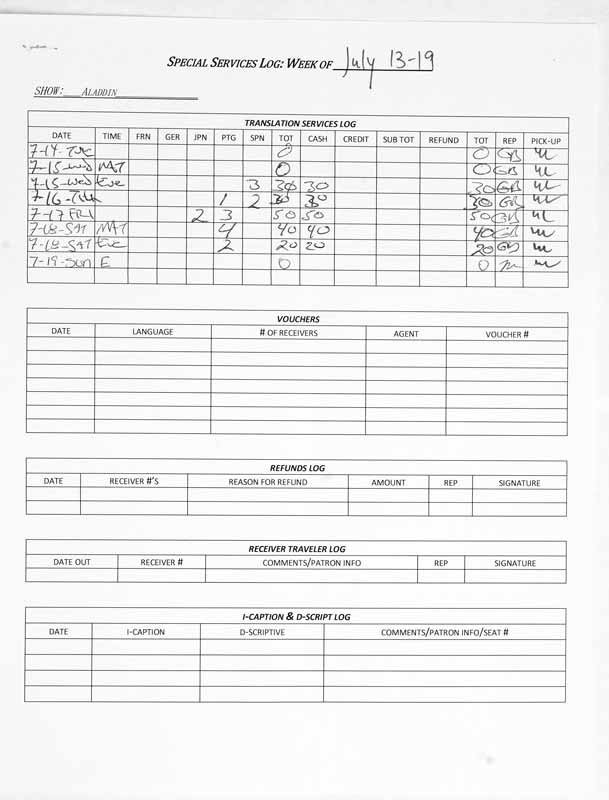 SPECIAL SERVICES LOG: WEEK OF July 13-19
SHOW: ALADDIN
TRANSLATION SERVICES LOG
DATE TIME FRN GER JPN PTG SPN TOT CASH CREDIT SUB TOT REFUND TOT REP PICK-UP
7-14-Tue 0 0 GB
7-15-wed MAT 0 0 GB
7-15-wed Eve 3 30 30 30 GB
7-16-Thu 1 2 30 30 30 GB
7-17 FRI 2 3 50 50 50 GB
7-18-SAT MAT 4 40 40 40 GB
7-18-SAT Eve 2 20 20 20 GB
7-19-Sun E 0 0
VOUCHERS
DATE LANGUAGE # OF RECEIVERS AGENT VOUCHER #
REFUNDS LOG
DATE RECEIVER #'S REASON FOR REFUND AMOUNT REP SIGNATURE
RECEIVER TRAVELER LOG
DATE OUT RECEIVER # COMMENTS/PATRON INFO REP SIGNATURE
I-CAPTION & D-SCRIPT LOG
DATE I-CAPTION D-SCRIPTIVE COMMENTS/PATRON INFO/SEAT #